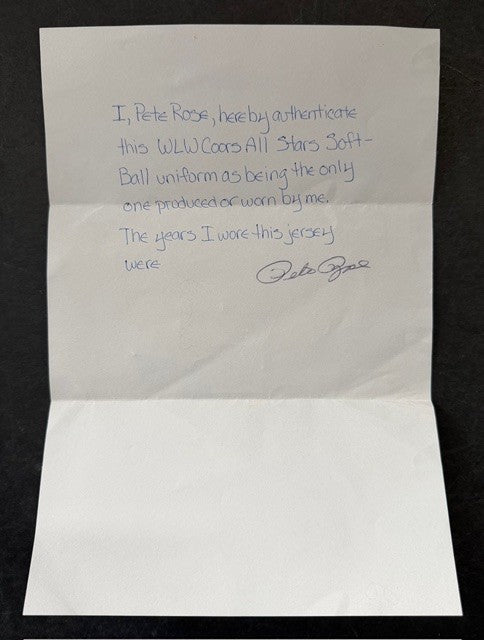 I, Pete Rose, hereby authenticate
this WLW Coors All Stars Soft-
Ball uniform as being the only
one produced or worn by me.
The years I wore this jersey
were
Pete Rose